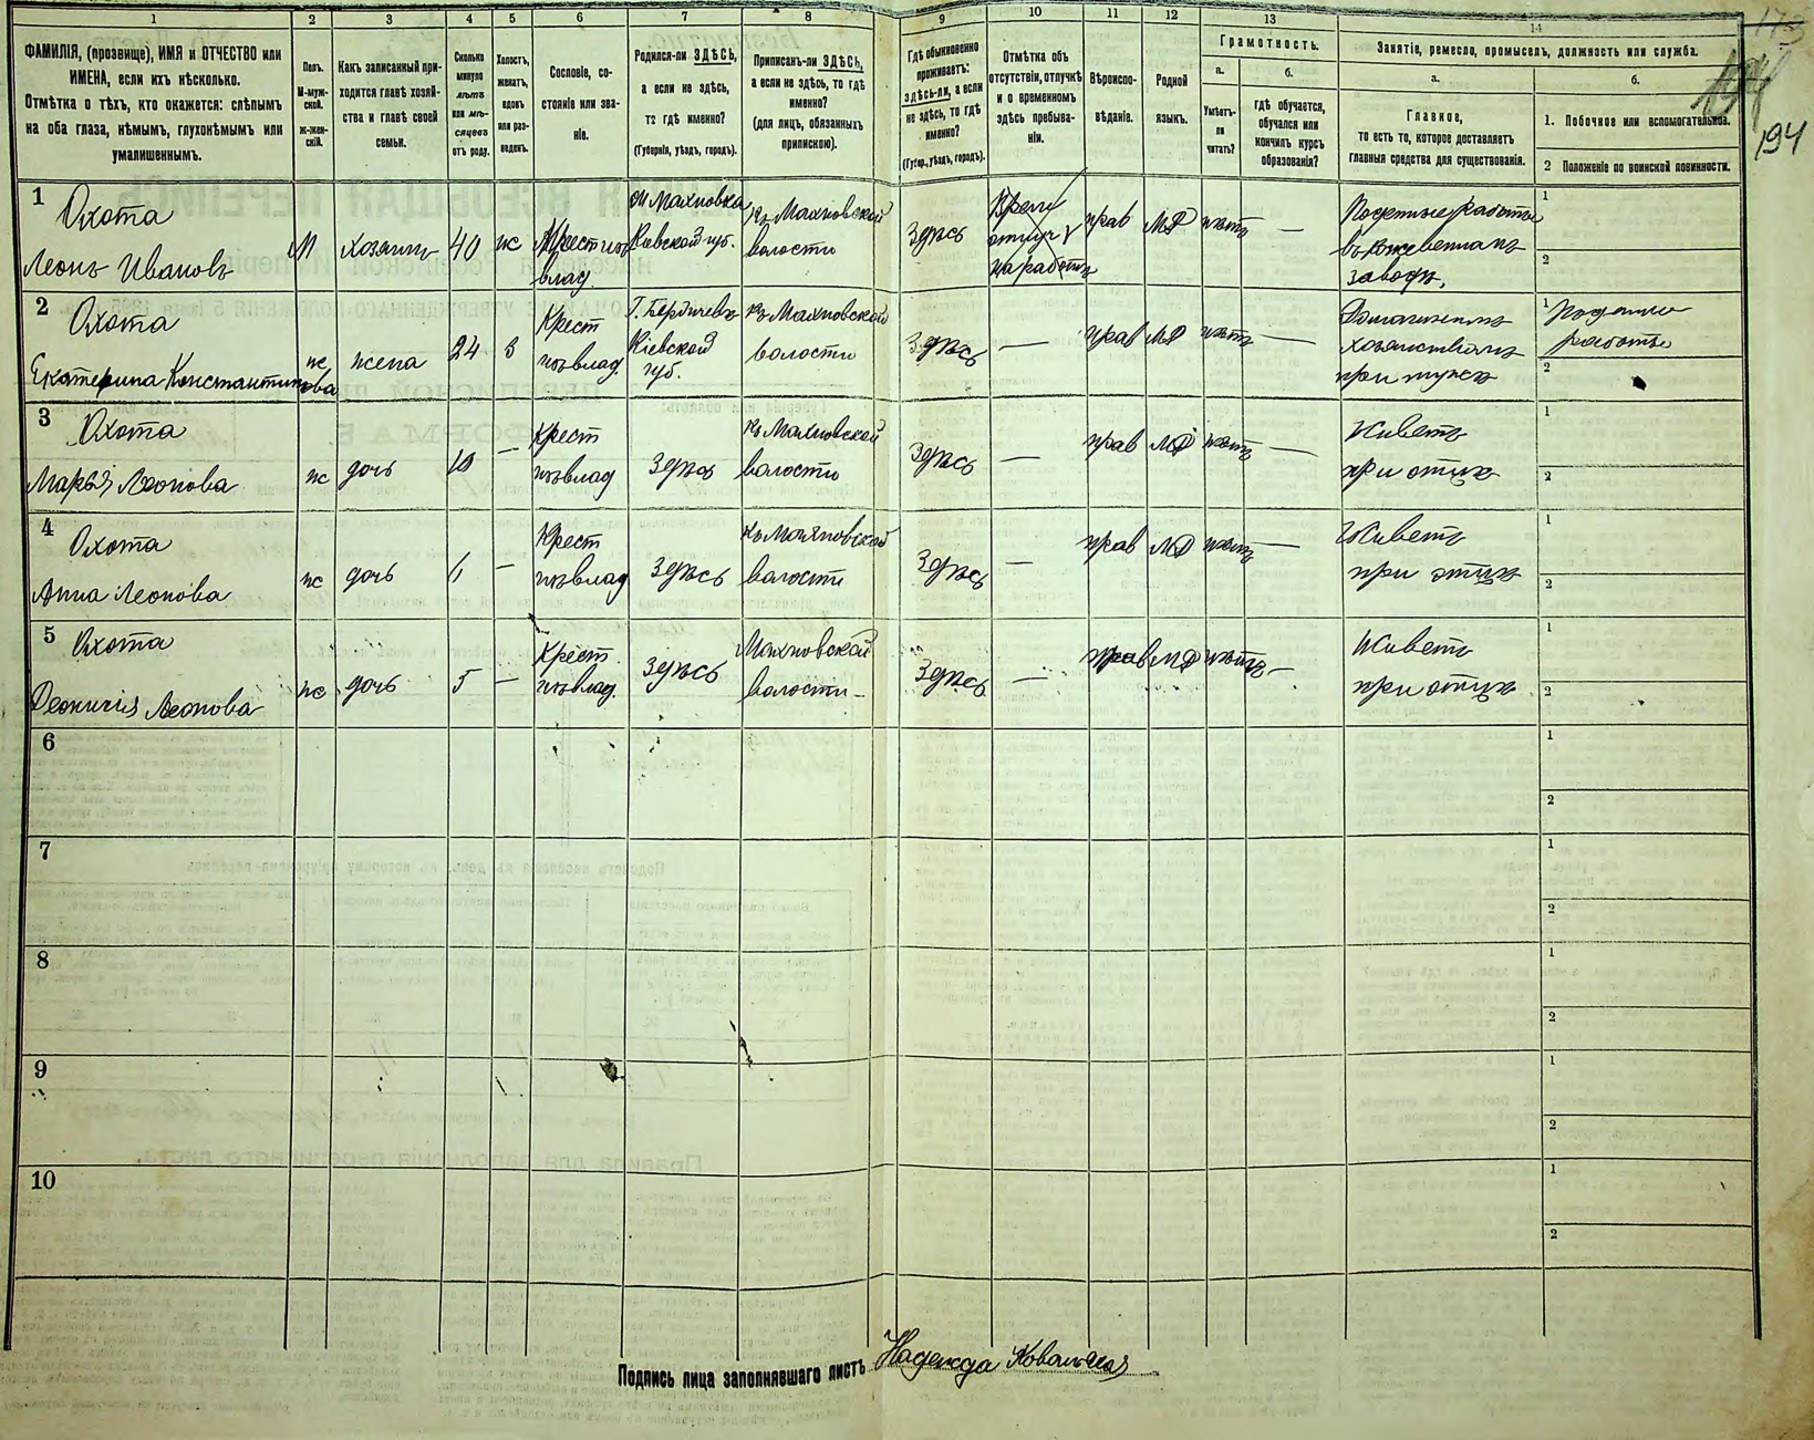 1 2 3 4 5 6 7 8 9 10 11 12 13 14
ФАМИЛІЯ, (прозвище), ИМЯ и ОТЧЕСТВО или
ИМЕНА, если ихъ нѣсколько.
Отмѣтка о тѣхъ, кто окажется: слѣпымъ
на оба глаза, нѣмымъ, глухонѣмымъ или
умалишеннымъ.
Полъ.
М-муж-
ской.
Ж-жен-
скій.
Какъ записанный при-
ходится главѣ хозяй-
ства и главѣ своей
семьи.
Сколько
минуло
лѣтъ
или мѣ-
сяцевъ
отъ роду.
Холостъ,
женатъ,
вдовъ
или раз-
веденъ.
Сословіе, со-
стояніе или зва-
ніе.
Родился-ли ЗДѢСЬ,
а если не здѣсь,
то гдѣ именно?
(Губернія, уѣздъ, городъ).
Приписанъ-ли ЗДѢСЬ,
а если не здѣсь, то гдѣ
именно?
(для лицъ, обязанныхъ
припискою).
Гдѣ обыкновенно
проживаетъ:
здѣсь-ли, а если
не здѣсь, то гдѣ
именно?
(Губер., уѣздъ, городъ).
Отмѣтка объ
отсутствіи, отлучкѣ
и о временномъ
здѣсь пребыва-
ніи.
Вѣроиспо-
вѣданіе.
Родной
языкъ.
Грамотность.
а.
Умѣетъ-
ли
читать?
б.
гдѣ обучается,
обучался или
кончилъ курсъ
образованія?
Занятіе, ремесло, промыселъ, должность или служба.
а.
Главное,
то есть то, которое доставляетъ
главныя средства для существованія.
б.
1. Побочное или вспомогательное.
2 Положеніе по воинской повинности.
194
1
Охота
Леонъ Ивановъ
М
хозяинъ
40
ж
влад.
м Махновка
Кіевской губ.
къ Махновской
волости
Здѣсь
прав
МР
нѣтъ
—
Поденные работы
заводѣ,
1
2
2
Охота
Екатерина Константинова
ж
жена
24
З
Крест
изъ влад.
Г. Бердичевъ
Кіевской
губ.
къ Махновской
волости
Здѣсь
—
прав
МР
нѣтъ
—
Домашнимъ
при мужѣ
1
работы
2
3
Охота
Марья Леонова
ж
дочь
—
Крест
изъ влад
Здѣсь
къ Махновской
волости
Здѣсь
—
прав
МР
нѣтъ
—
Живетъ
при отцѣ
1
2
4
Охота
Анна Леонова
ж
дочь
—
Крест
изъ влад
Здѣсь
къ Махновской
волости
Здѣсь
—
прав
МР
нѣтъ
—
Живетъ
при отцѣ
1
2
5
Охота
Леонова
ж
дочь
5
—
Крест
изъ влад.
Здѣсь
Махновской
волости
Здѣсь
—
прав
МР
нѣтъ
—
Живетъ
при отцѣ
1
2
6
1
2
7
1
2
8
1
2
9
1
2
10
1
2
Подпись лица заполнявшаго листъ Надежда